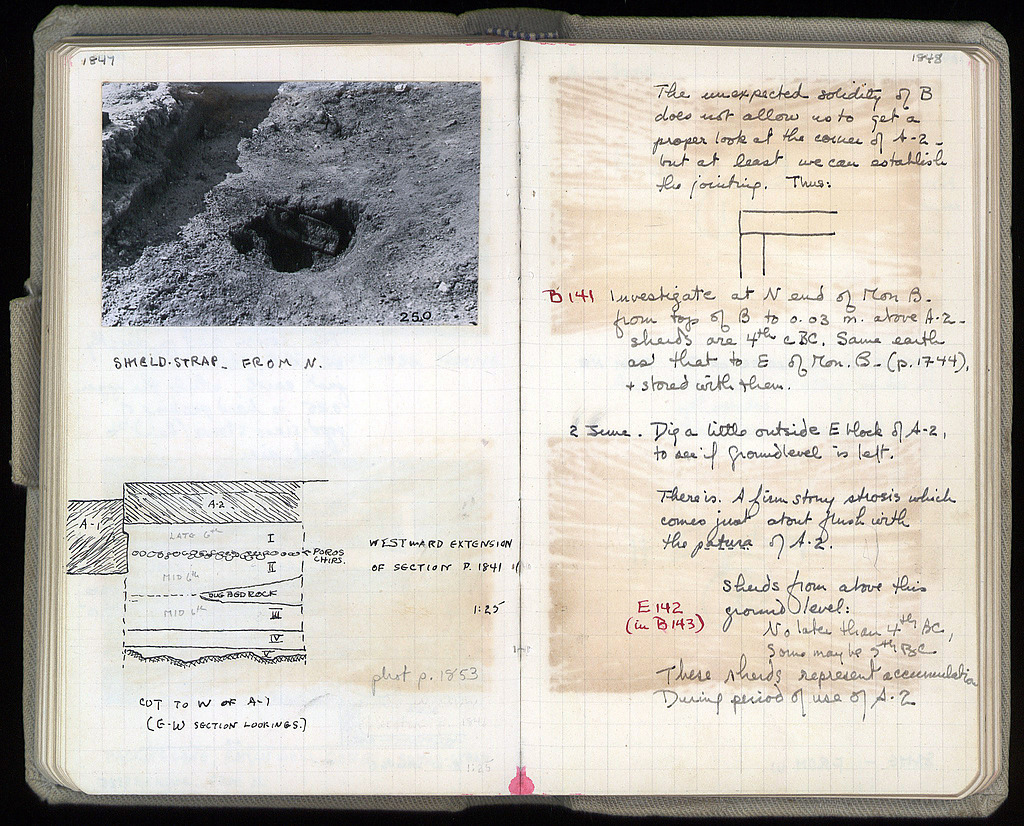 1847
250
SHIELD-STRAP_ FROM N.
A-2
A-1
LATE 6th
I
POROS
CHIPS.
II
MID 6th
DUG BEDROCK
MID 6th
III
IV
V
WESTWARD EXTENSION
OF SECTION P. 1841
1:25
phot p. 1853
CUT TO W OF A-1
(E-W SECTION LOOKING S.)
1848
The unexpected solidity of B
does not allow us to get a
proper look at the corner of A-2 –
but at least we can establish
the jointing. Thus:
B 141 Investigate at N end of Mon B –
from top of B to 0.03 m. above A-2 –
sherds are 4th c BC. Same earth
as that to E of Mon. B – (p. 1744),
+ stored with them.
2 June. Dig a little outside E block of A-2,
to see if ground level is left.
There is. A firm stony strosis which
comes just about flush with
the patura of A-2.
Sherds from above this
E 142 ground level:
(in B 143)
No later than 4th BC,
Some may be 5th BC
These sherds represent accumulation
During period of use of A-2